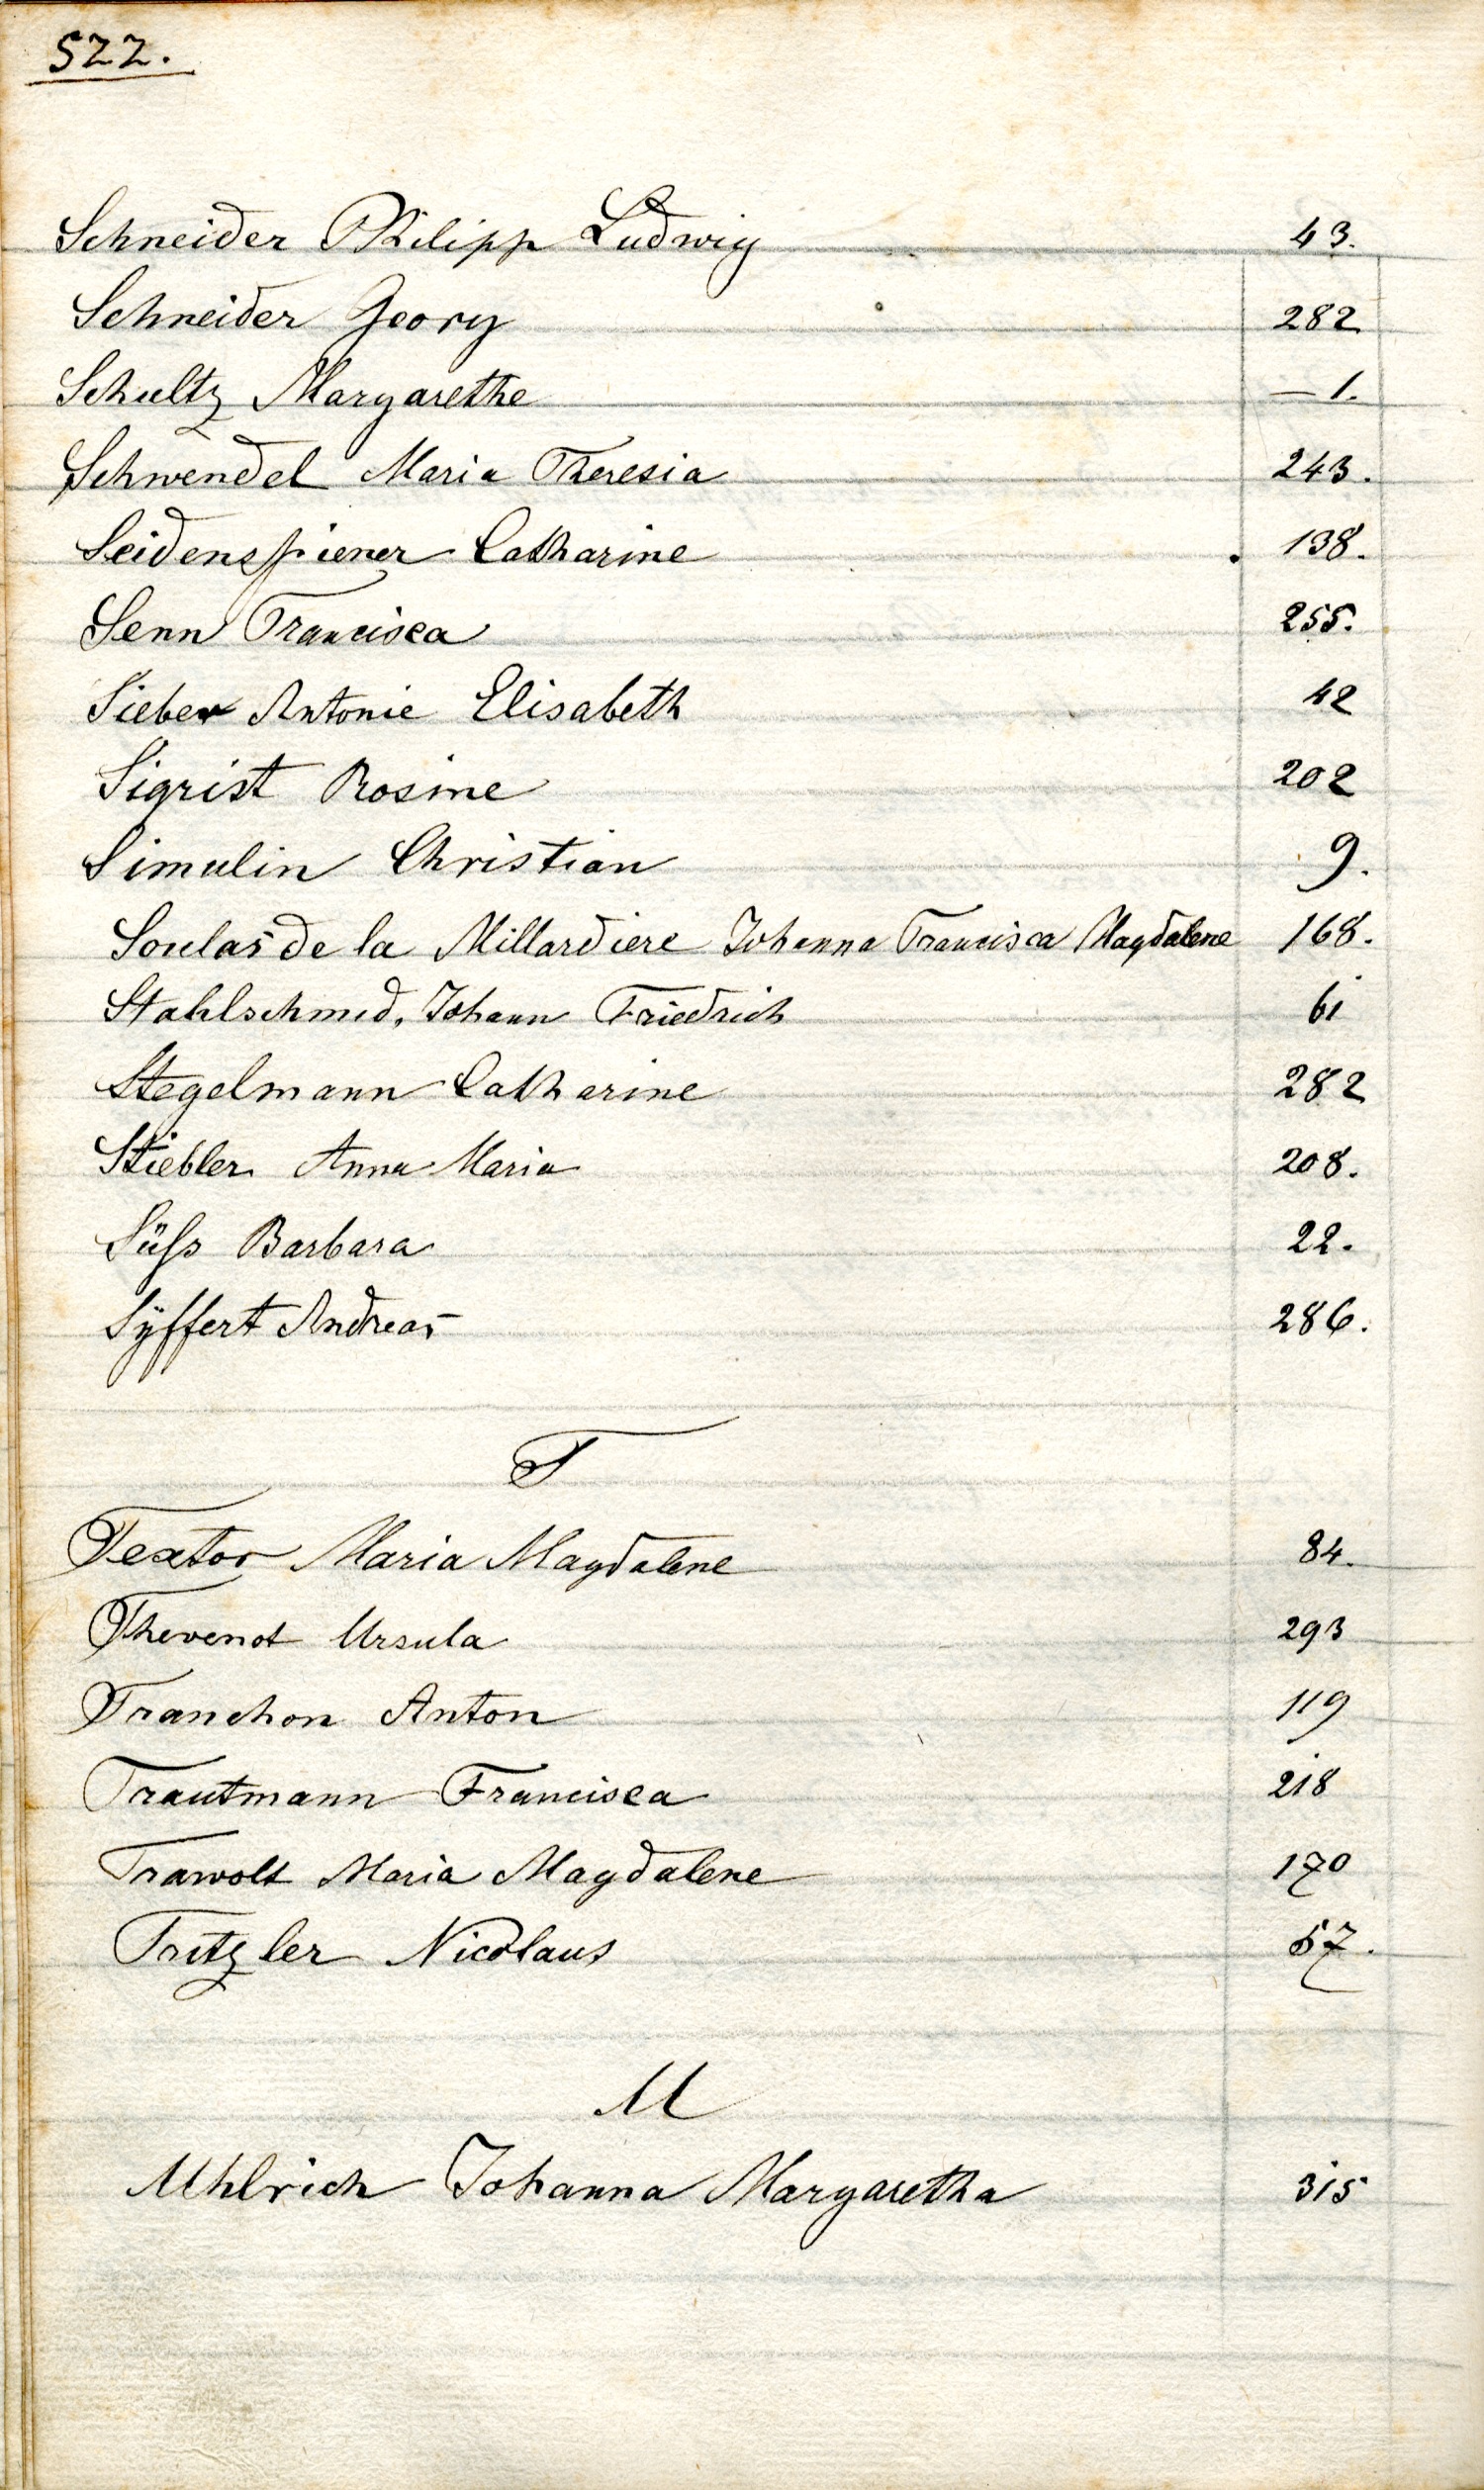 522.
Schneider Philipp Ludwig 43.
Schneider Georg 282
Schultz Margarethe — 1.
Schwendel Maria Theresia 243.
Seidenspiener Catharine 138.
Senn Francisca 255.
Sieber Antonie Elisabeth 42
Sigrist Rosine 202
Simulin Christian 9.
Soulas de la Millardiere Johanna Francisca Magdalene 168.
Stahlschmid, Johann Friedrich 61
Stegelmann Catharine 282
Stiebler Anna Maria 208.
Süſs Barbara 22.
Sÿffert Andreas 286.
T
Textor Maria Magdalene 84.
Thevenot Ursula 293
Tranchon Anton 119
Trautmann Francisca 218
Trawolt Maria Magdalene 170
Tritzler Nicolaus 57.
U
Uhlrich Johanna Margaretha 315